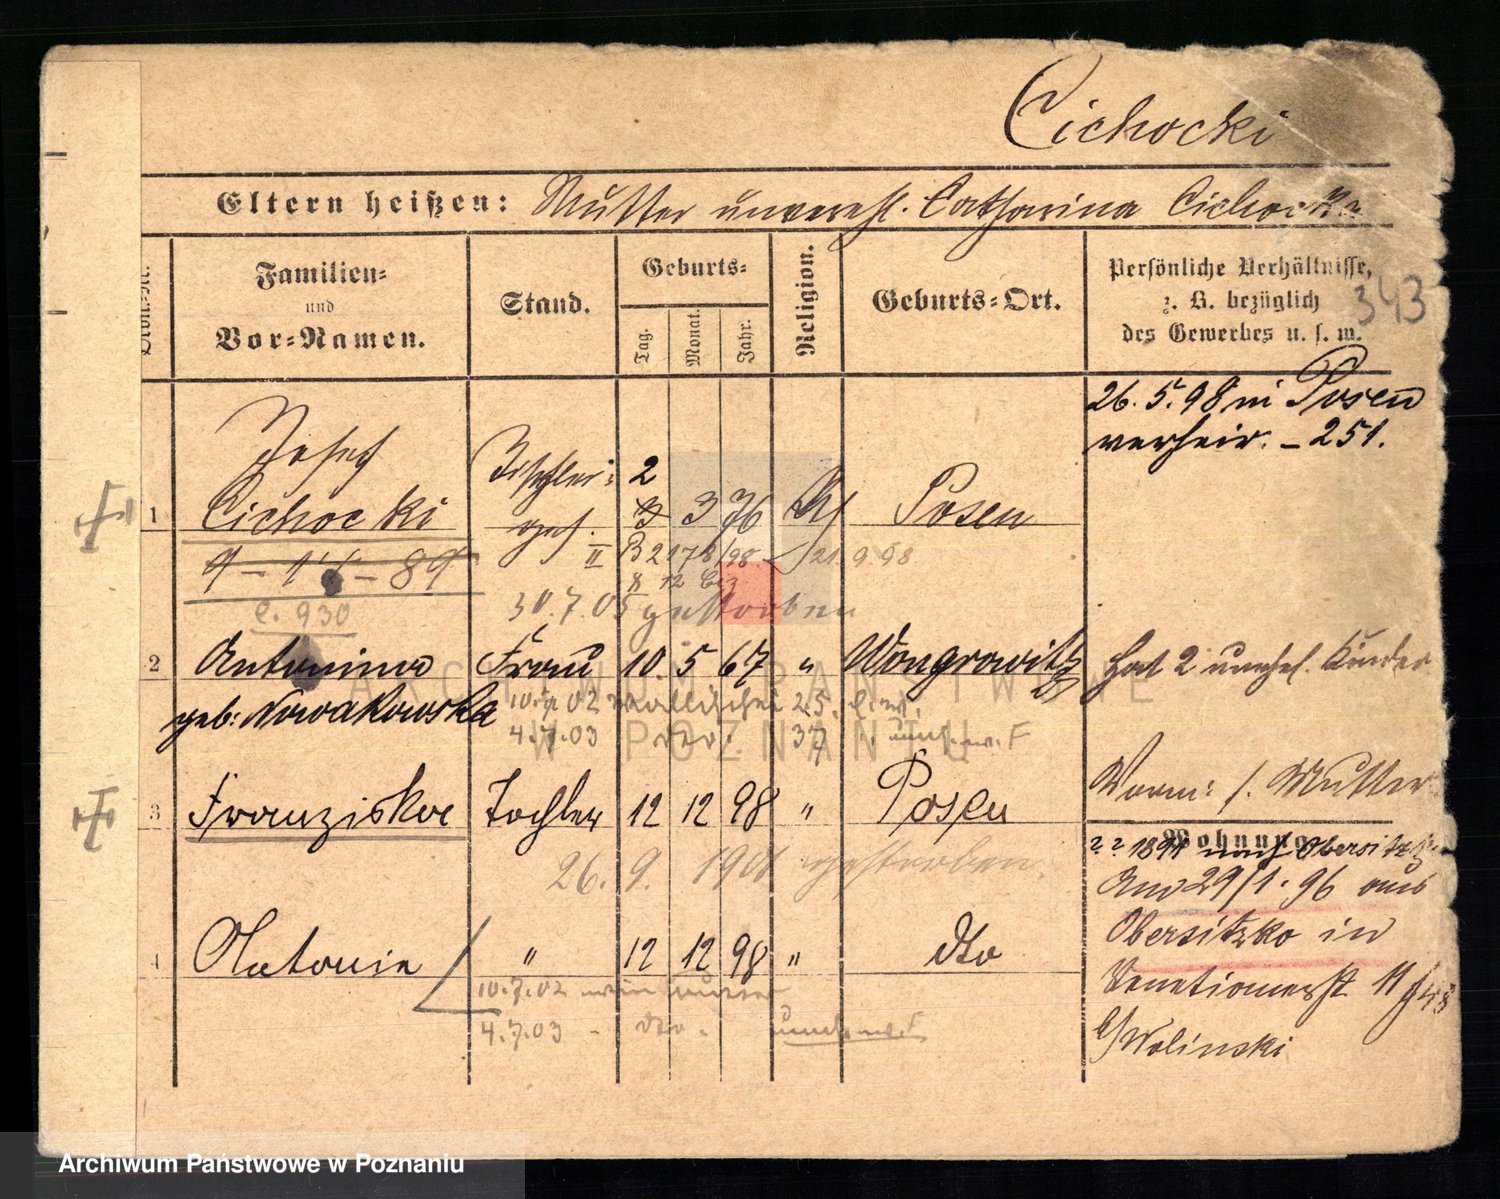 Cichocki
Eltern heißen: Mutter unverehl. Catharina Cichocka
Familien=
und
Vor=Namen.
Stand.
Geburts=
Tag.
Monat.
Jahr.
Religion.
Geburts=Ort.
Persönliche Verhältnisse,
z. B. bezüglich
des Gewerbes u. s. w.
343
26. 5. 98 in Posen
verheir. – 251.
1 Josef Cichocki Tischler= ges. 2 3 3 76 Posen
9 – 11 – 89
C. 930
II B 2178/98 21.9.98
30.7.05 gestorben
2 Antonina Frau 10. 5 67 " Wongrowitz Hat 2 unehel. Kinder
geb: Nowakowska
10.7.02 Wallischei 25.
4.7.03 37
3 Franziska Tochter 12 12 98 " Posen
Vorm: /. Mutter
Wohnung
1891 nach Obersitzko
26. 9. 1901 gestorben.
Am 29/1. 96 aus
Obersitzko in
4 Antonie " 12 12 98 " dto
Venetianerst 11
10.7.02
4.7.03 - dto.
b/Wolinski
ARCHIWUM PAŃSTWOWE
W POZNANIU
Archiwum Państwowe w Poznaniu